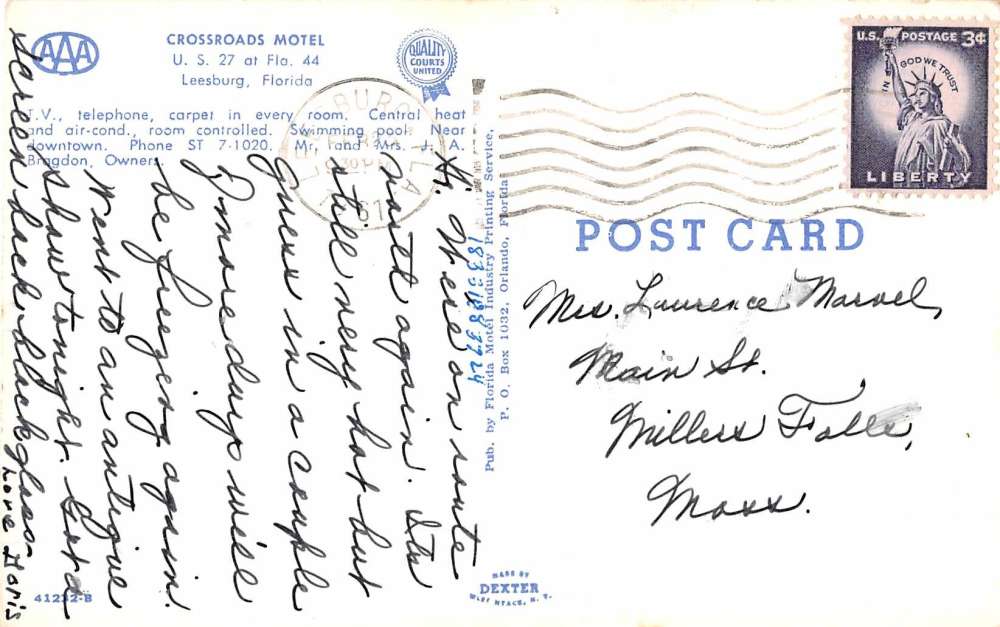 AAA
CROSSROADS MOTEL
U. S. 27 at Fla. 44
Leesburg, Florida
QUALITY
COURTS
UNITED
T.V., telephone, carpet in every room. Central heat
and air-cond., room controlled. Swimming pool. Near
downtown. Phone ST 7-1020. Mr. and Mrs. J. A.
Bragdon, Owners.
Hi. We're on route
north again. Its
still very hot but
guess in a couple
of more days we'll
be freezing again.
Went to an antique
show tonight.
Love Doris
41232-B
Pub. by Florida Motel Industry Printing Service,
P. O. Box 1032, Orlando, Florida
MADE BY
DEXTER
WEST NYACK, N. Y.
LEESBURG FLA
U.S. POSTAGE 3¢
IN GOD WE TRUST
LIBERTY
POST CARD
Mrs. Lawrence Marvel,
Main St.
Millers Falls,
Mass.